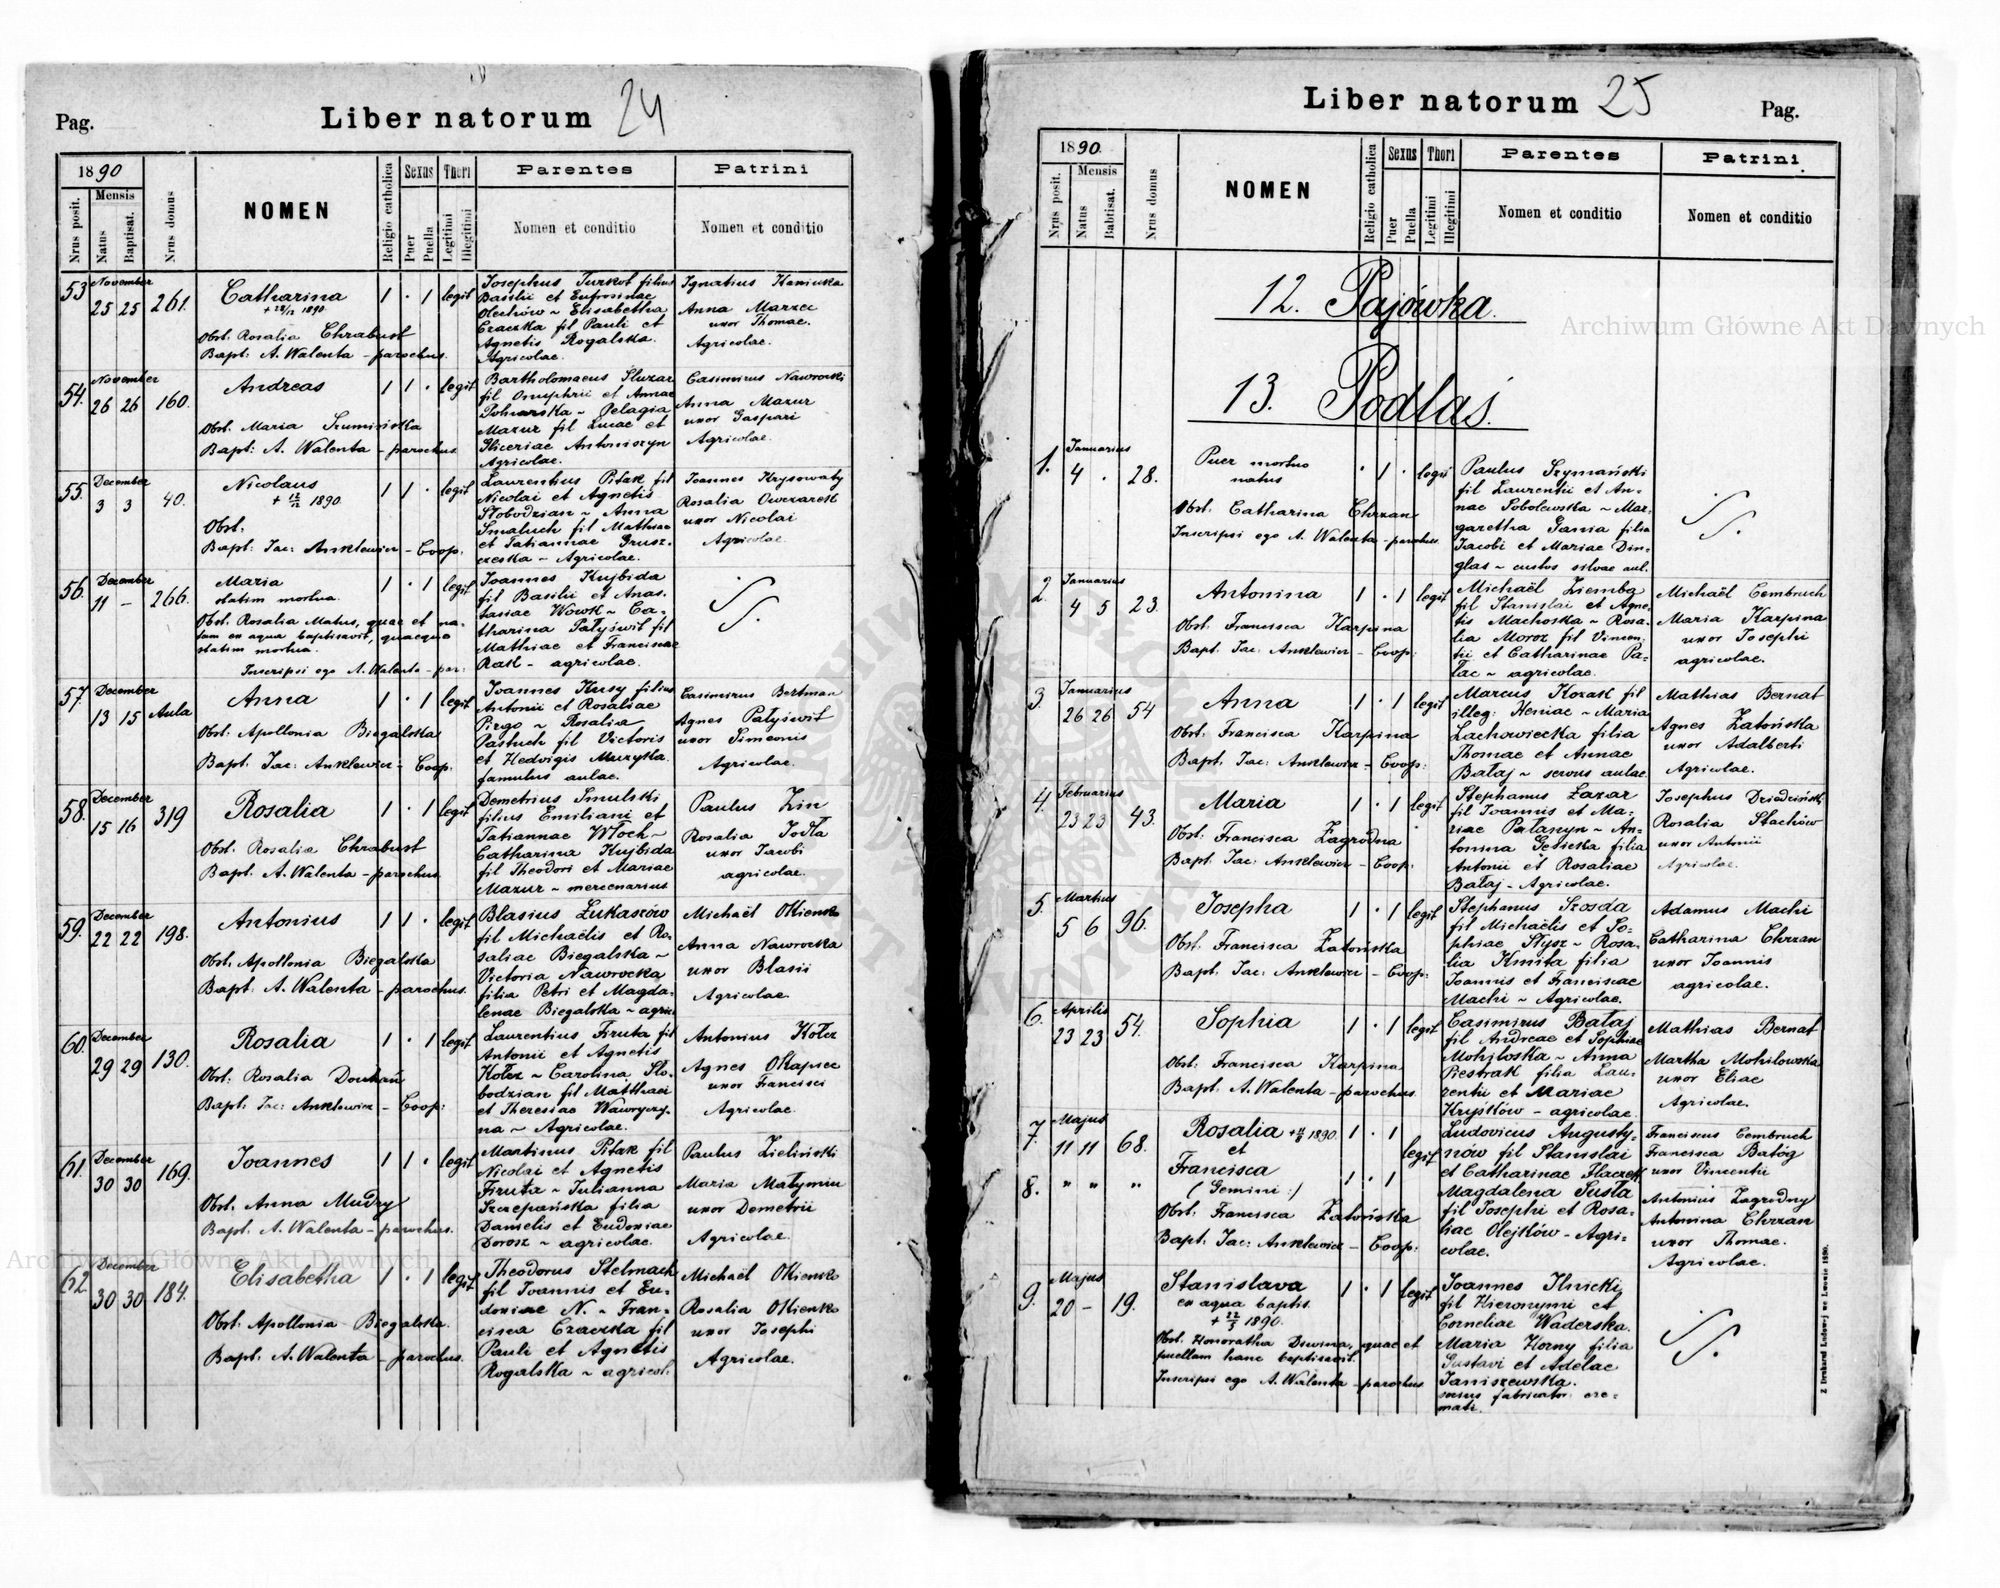 Pag.
Liber natorum 24
1890
Nrus posit.
Mensis
Natus
Baptisat.
Nrus domus
NOMEN
Religio catholica
Sexus
Puer
Puella
Thori
Legitimi
Illegitimi
Parentes
Nomen et conditio
Patrini
Nomen et conditio
53
November
25 25 261.
Catharina
+ 28/12 1890.
Obst. Rosalia Chrabust
Bapt: A. Walenta - parochus.
1 . 1 legit
Josephus Turkot filius
Basilii et Eufrosinae
Olechów ~ Elisabetha
Czaczka fil Pauli et
Agnetis Rogalska.
Agricolae.
Ignatius Kaniuka
Anna Marzec
uxor Thomae.
Agricolae.
54.
November
26 26 160.
Andreas
Obst. Maria Szumińska
Bapt: A. Walenta - parochus.
1 1 . legit
Bartholomaeus Sluzar
fil Onuphrii et Annae
Pohorska ~ Pelagia
Mazur fil Lucae et
Gliceriae Antoniszyn
Agricolae.
Casimirus Nawrocki
Anna Mazur
uxor Gaspari
Agricolae.
55.
December
3 3 40.
Nicolaus
+ 12/12 1890.
Obst.
Bapt: Jac: Anklewicz - Coop:
1 1 . legit
Laurentius Pitak fil
Nicolai et Agnetis
Słobodzian ~ Anna
Smaluch fil Mathiae
et Tatiannae Grusz-
czeska ~ Agricolae.
Joannes Krysowaty
Rosalia Owczarek
uxor Nicolai
Agricolae.
56.
December
11 - 266.
Maria
statim mortua.
Obst. Rosalia Matus, quae et na-
tam ex aqua baptisavit, quaeque
statim mortua.
Inscripsi ego A. Walenta - par:
1 . 1 legit
Joannes Kujbida
fil Basilii et Anas-
tasiae Wowk ~ Ca-
tharina Pałyświt fil
Mathiae et Franciscae
Rak - agricolae.
57.
December
13 15 Aula
Anna
Obst. Apollonia Biegalska
Bapt. Jac: Anklewicz - Coop:
1 . 1 legit
Joannes Kusy filius
Antonii et Rosaliae
Pirgo ~ Rosalia
Pastuch fil Victoris
et Hedvigis Muzyka.
famulus aulae.
Casimirus Bertman
Agnes Pałyświt
uxor Simeonis
Agricolae.
58.
December
15 16 319
Rosalia
Obst. Rosalia Chrabust
Bapt. A. Walenta - parochus.
1 . 1 legit
Demetrius Smulski
filius Emiliani et
Tatiannae Włoch ~
Catharina Kujbida
fil Theodori et Mariae
Mazur - mercenarius
Paulus Zin
Rosalia Jodła
uxor Jacobi
agricolae.
59.
December
22 22 198.
Antonius
Obst. Apollonia Biegalska
Bapt: A. Walenta - parochus.
1 1 . legit
Blasius Łukaszów
fil Michaëlis et Ro-
saliae Biegalska ~
Victoria Nawrocka
filia Petri et Magda-
lenae Biegalska ~ agric
Michaël Okienko
Anna Nawrocka
uxor Blasii
Agricolae.
60.
December
29 29 130.
Rosalia
Obst. Rosalia Douhań
Bapt: Jac: Anklewicz - Coop:
1 . 1 legit
Laurentius Firuta fil
Antonii et Agnetis
Koterz ~ Carolina Sło-
bodzian fil Matthaei
et Theresiae Wawryczy-
na ~ Agricolae.
Antonius Koterz
Agnes Okapiec
uxor Francisci
Agricolae.
61.
December
30 30 169.
Joannes
Obst. Anna Mudry
Bapt. A. Walenta - parochus.
1 1 . legit
Martinus Pitak fil
Nicolai et Agnetis
Firuta ~ Julianna
Szczepańska filia
Danielis et Eudoxiae
Dorosz ~ agricolae.
Paulus Zieliński
Maria Matymiu
uxor Demetrii
Agricolae.
62.
December
30 30 184.
Elisabetha
Obst. Apollonia Biegalska.
Bapt. A. Walenta - parochus.
1 . 1 legit
Theodorus Stelmach
fil Joannis et Eu-
doxiae N. ~ Fran-
cisca Czaczka fil
Pauli et Agnetis
Rogalska ~ agricol.
Michaël Okienko
Rosalia Okienko
uxor Josephi
Agricolae.
Liber natorum 25
Pag.
1890.
Nrus posit.
Mensis
Natus
Babtisat.
Nrus domus
NOMEN
Religio catholica
Sexus
Puer
Puella
Thori
Legitimi
Illegitimi
Parentes
Nomen et conditio
Patrini
Nomen et conditio
12. Pajówka.
13. Podlas.
1.
Januarius
4 . 28.
Puer mortuo
natus
Obst. Catharina Chrzan
Inscripsi ego A. Walenta - parochus.
. 1 . legit
Paulus Szymański
fil Laurentii et An-
nae Sobolewska ~ Mar-
garetha Gania filia
Jacobi et Mariae Din-
glas - custos silvae aul.
2.
Januarius
4 5 23.
Antonina
Obst. Francisca Karpina
Bapt. Jac: Anklewicz - Coop:
1 . 1 legit
Michaël Ziemba
fil Stanislai et Agne-
tis Machoska ~ Rosa-
lia Moroz fil Vincen-
tii et Catharinae Pa-
łac ~ agricolae.
Michaël Cembruch
Maria Karpina
uxor Josephi
agricolae.
3.
Januarius
26 26 54
Anna
Obst. Francisca Karpina
Bapt. Jac: Anklewicz - Coop:
1 . 1 legit
Marcus Kozak fil
illeg: Heniae ~ Maria
Lachowiecka filia
Thomae et Annae
Bałaj ~ servus aulae.
Mathias Bernat
Agnes Zatońska
uxor Adalberti
Agricolae.
4.
Februarius
23 23 43.
Maria
Obst. Francisca Zagrodna
Bapt. Jac: Anklewicz - Coop:
1 . 1 legit
Stephanus Łazar
fil Joannis et Ma-
riae Pałaszyn ~ An-
tonina Sesicka filia
Antonii et Rosaliae
Bałaj - Agricolae.
Josephus Dziedzińsk
Rosalia Stachów
uxor Antonii
Agricolae.
5.
Martius
5 6 96.
Josepha
Obst. Francisca Zatońska
Bapt. Jac: Anklewicz - Coop:
1 . 1 legit
Stephanus Szosda
fil Michaëlis et So-
phiae Stysz ~ Rosa-
lia Kmita filia
Joannis et Franciscae
Machi ~ Agricolae.
Adamus Machi
Catharina Chrzan
uxor Joannis
agricolae.
6.
Aprilis
23 23 54.
Sophia
Obst. Francisca Karpina
Bapt. A. Walenta - parochus.
1 . 1 legit
Casimirus Bałaj
fil Andreae et Sophiae
Mohiloska ~ Anna
Piestrak filia Lau-
rentii et Mariae
Kryśków - agricolae.
Mathias Bernat
Martha Mohilowska
uxor Eliae
Agricolae.
7.
Majus
11 11 68.
Rosalia 1890.
et
8. " " "
Francisca
(Gemini:)
Obst. Francisca Zatońska
Bapt. Jac: Anklewicz - Coop:
1 . 1
legit
1 . 1
Ludovicus Augusty-
nów fil Stanislai
et Catharinae Tkaczek
Magdalena Susła
fil Josephi et Rosa-
liae Olejków - Agri-
colae.
Franciscus Cembruch
Francisca Batóg
uxor Vincentii
Antonius Zagrodny
Antonina Chrzan
uxor Thomae.
Agricolae.
9.
Majus
20 - 19.
Stanislava
ex aqua baptis.
+ 22/5 1890.
Obst. Honoratha Diwina, quae et
puellam hanc baptisavit.
Inscripsi ego A. Walenta - parochus
1 . 1 legit
Joannes Ilnicki
fil Hieronymi et
Corneliae Waderska.
Maria Horny filia
Gustavi et Adelae
Janiszewska.
socius fabricator: cre-
mati.
Z Drukarni Ludowej we Lwowie 1890.
Archiwum Główne Akt Dawnych
Archiwum Główne Akt Dawnych